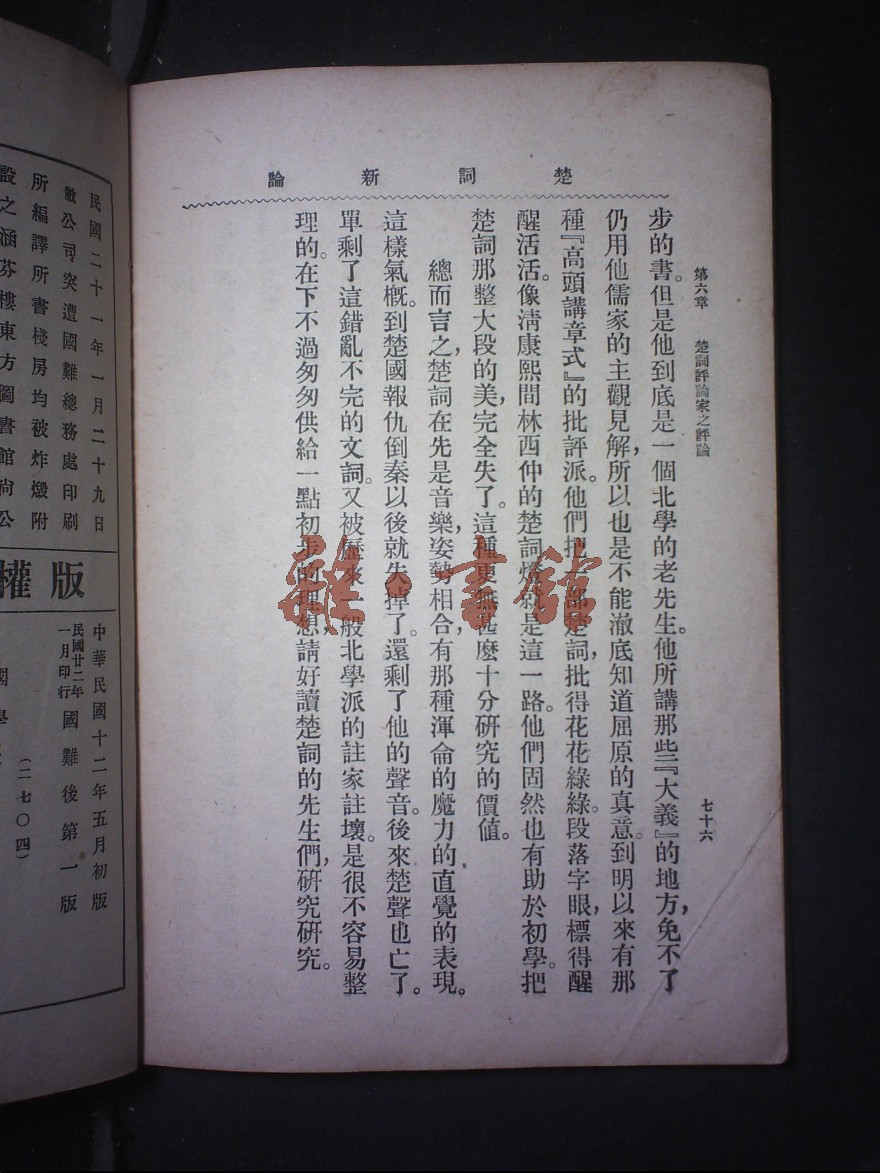 楚詞新論
第六章　楚詞評論家之評論
七十六
步的書。但是他到底是一個北學的老先生。他所講那些『大義』的地方，免不了
仍用他儒家的主觀見解，所以也是不能澈底知道屈原的真意。到明以來有那
種『高頭講章式』的批評派。他們把一部楚詞，批得花花綠綠。段落字眼，標得醒
醒活活。像淸康熙間林西仲的楚詞燈就是這一路。他們固然也有助於初學。把
楚詞那整大段的美，完全失了。這種更無甚麽十分硏究的價值。
總而言之，楚詞在先是音樂，姿勢相合，有那種渾侖的魔力的直覺的表現。
這樣氣槪。到楚國報仇倒秦以後就失掉了。還剩了他的聲音。後來楚聲也亡了。
單剩了這錯亂不完的文詞。又被歷來一般北學派的註家註壞。是很不容易整
理的。在下不過匆匆供給一點初步的理想，請好讀楚詞的先生們，硏究硏究。
民國二十一年一月二十九日
敝公司突遭國難總務處印刷
所編譯所書棧房均被炸燬附
設之涵芬樓東方圖書館尙公
版權
中華民國十二年五月初版
民國廿二年
一月印行
國難後第一版
(二七〇四)
國學
雜·書館